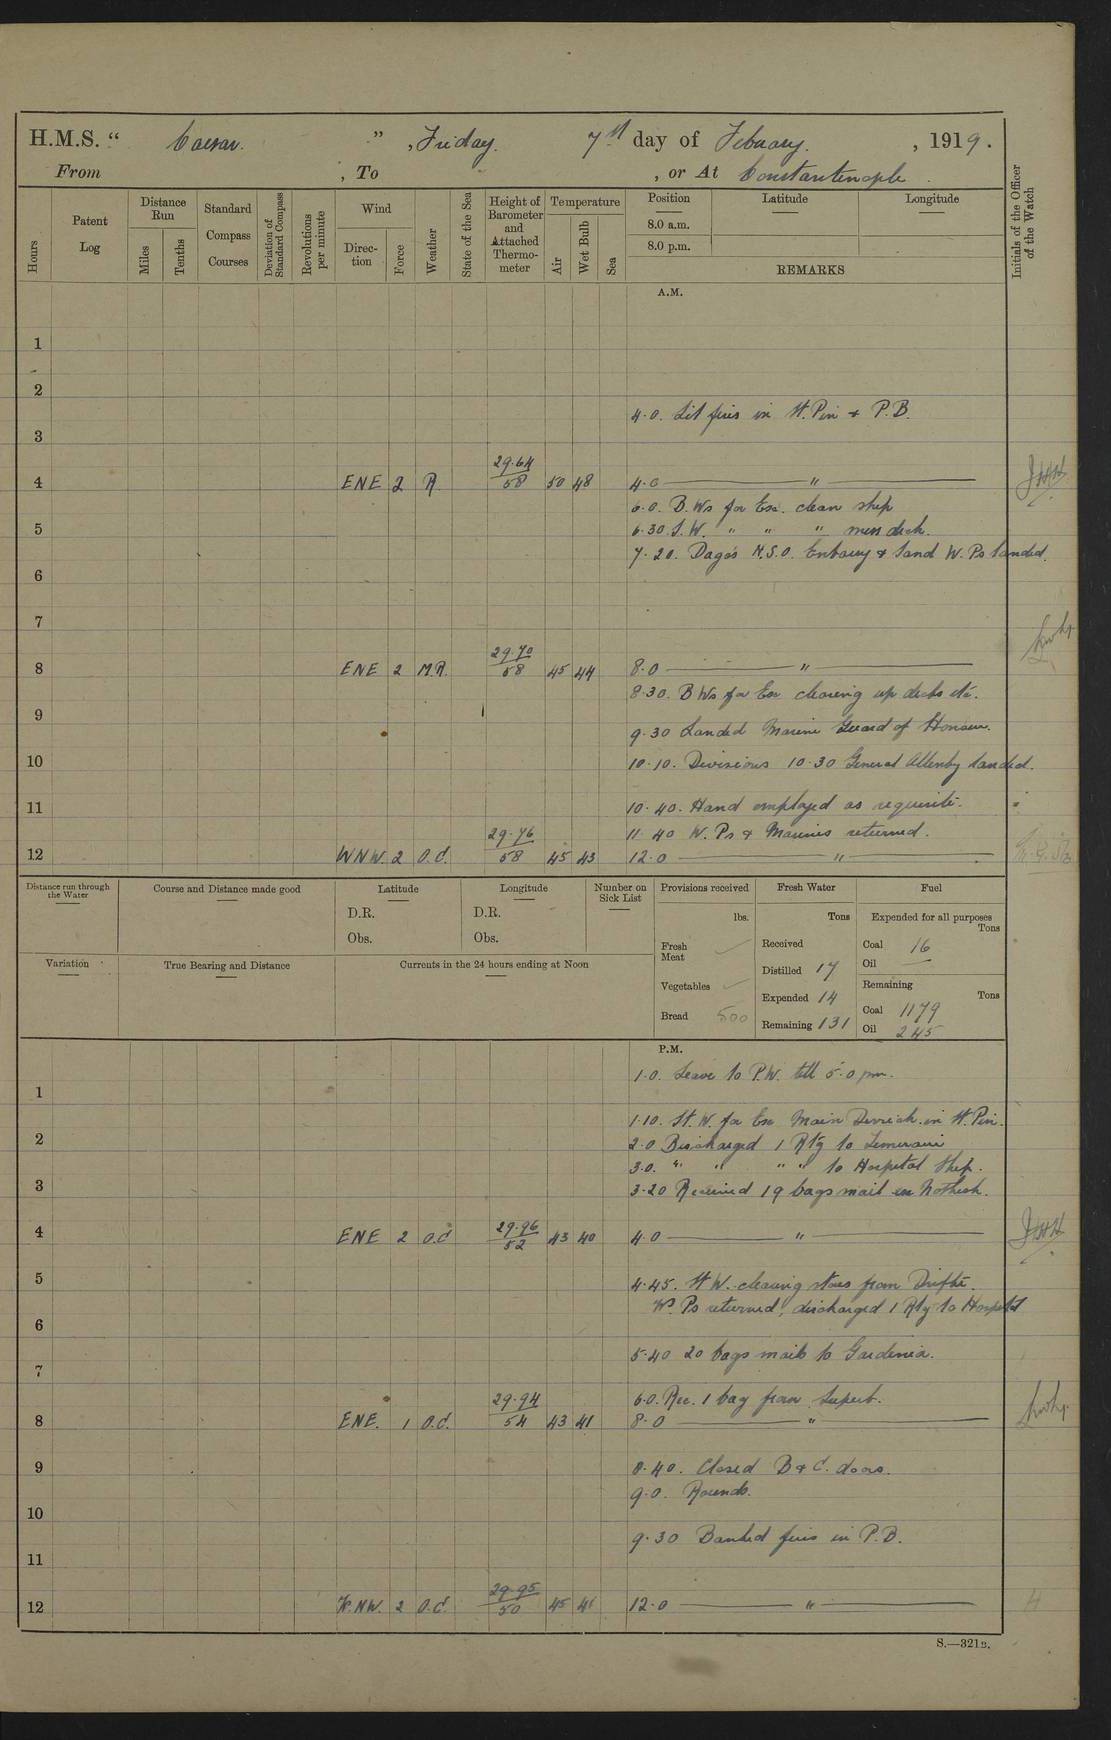 H.M.S. “ Caesar. ” , Friday. 7st day of Febuary. , 1919.
From , To , or At Constantenople.
Hours
Patent Log
Distance Run
Miles
Tenths
Standard Compass Courses
Deviation of Standard Compass
Revolutions per minute
Wind
Direction
Force
Weather
State of the Sea
Height of Barometer and Attached Thermometer
Temperature
Air
Wet Bulb
Sea
Position
8.0 a.m.
8.0 p.m.
Latitude
Longitude
REMARKS
Initials of the Officer of the Watch
A.M.
1
2
4.0. Lit fires in St. Pin & P.B.
3
4 ENE 2 R 29.64 58 50 48 4.0 " JHH
6.0. B.Ws for Exc. clean ship
5 6.30 S.W. " " " mess deck.
7.20. Dago's N.S.O. Embassy & Land W. Ps landed.
6
7
8 ENE 2 M.R. 29.70 58 45 44 8.0 "
8.30. B Ws for Exc clearing up decks etc.
9 9.30 Landed Marine Guard of Honour.
10 10.10. Divisions 10.30 General Allenby landed.
11 10.40. Hand employed as requisite.
11.40 W. Ps & Marines returned.
12 WNW. 2 O.C. 29.76 58 45 43 12.0 "
Distance run through the Water
Course and Distance made good
Latitude
D.R.
Obs.
Longitude
D.R.
Obs.
Number on Sick List
Provisions received
lbs.
Fresh Meat
Vegetables
Bread 500
Fresh Water
Tons
Received
Distilled 17
Expended 14
Remaining 131
Fuel
Expended for all purposes
Tons
Coal 16
Oil —
Remaining
Tons
Coal 1179
Oil 245
Variation
True Bearing and Distance
Currents in the 24 hours ending at Noon
P.M.
1.0. Leave to P.W. till 5.0 pm.
1
1.10. St. W. for Exc Main Derrick in St. Pin.
2 2.0 Discharged 1 Rtg to
3.0. " " " " to Hospital Ship.
3 3.20 Received 19 bags mail
4 ENE 2 O.C 29.96 52 43 40 4.0 " JHH
5 4.45. St W. clearing stores from Drifter.
W. Ps returned, discharged 1 Rtg to Hospital
6
5.40 20 bags mails to Gardenia.
7
6.0. Rec. 1 bag from Superb.
8 ENE. 1 O.C. 29.94 54 43 41 8.0 "
9 8.40. Closed B & C. doors.
9.0. Rounds.
10
9.30 Banked fires in P.B.
11
12 W.NW. 2 O.C. 29.95 50 45 41 12.0 " H
S.—321B.